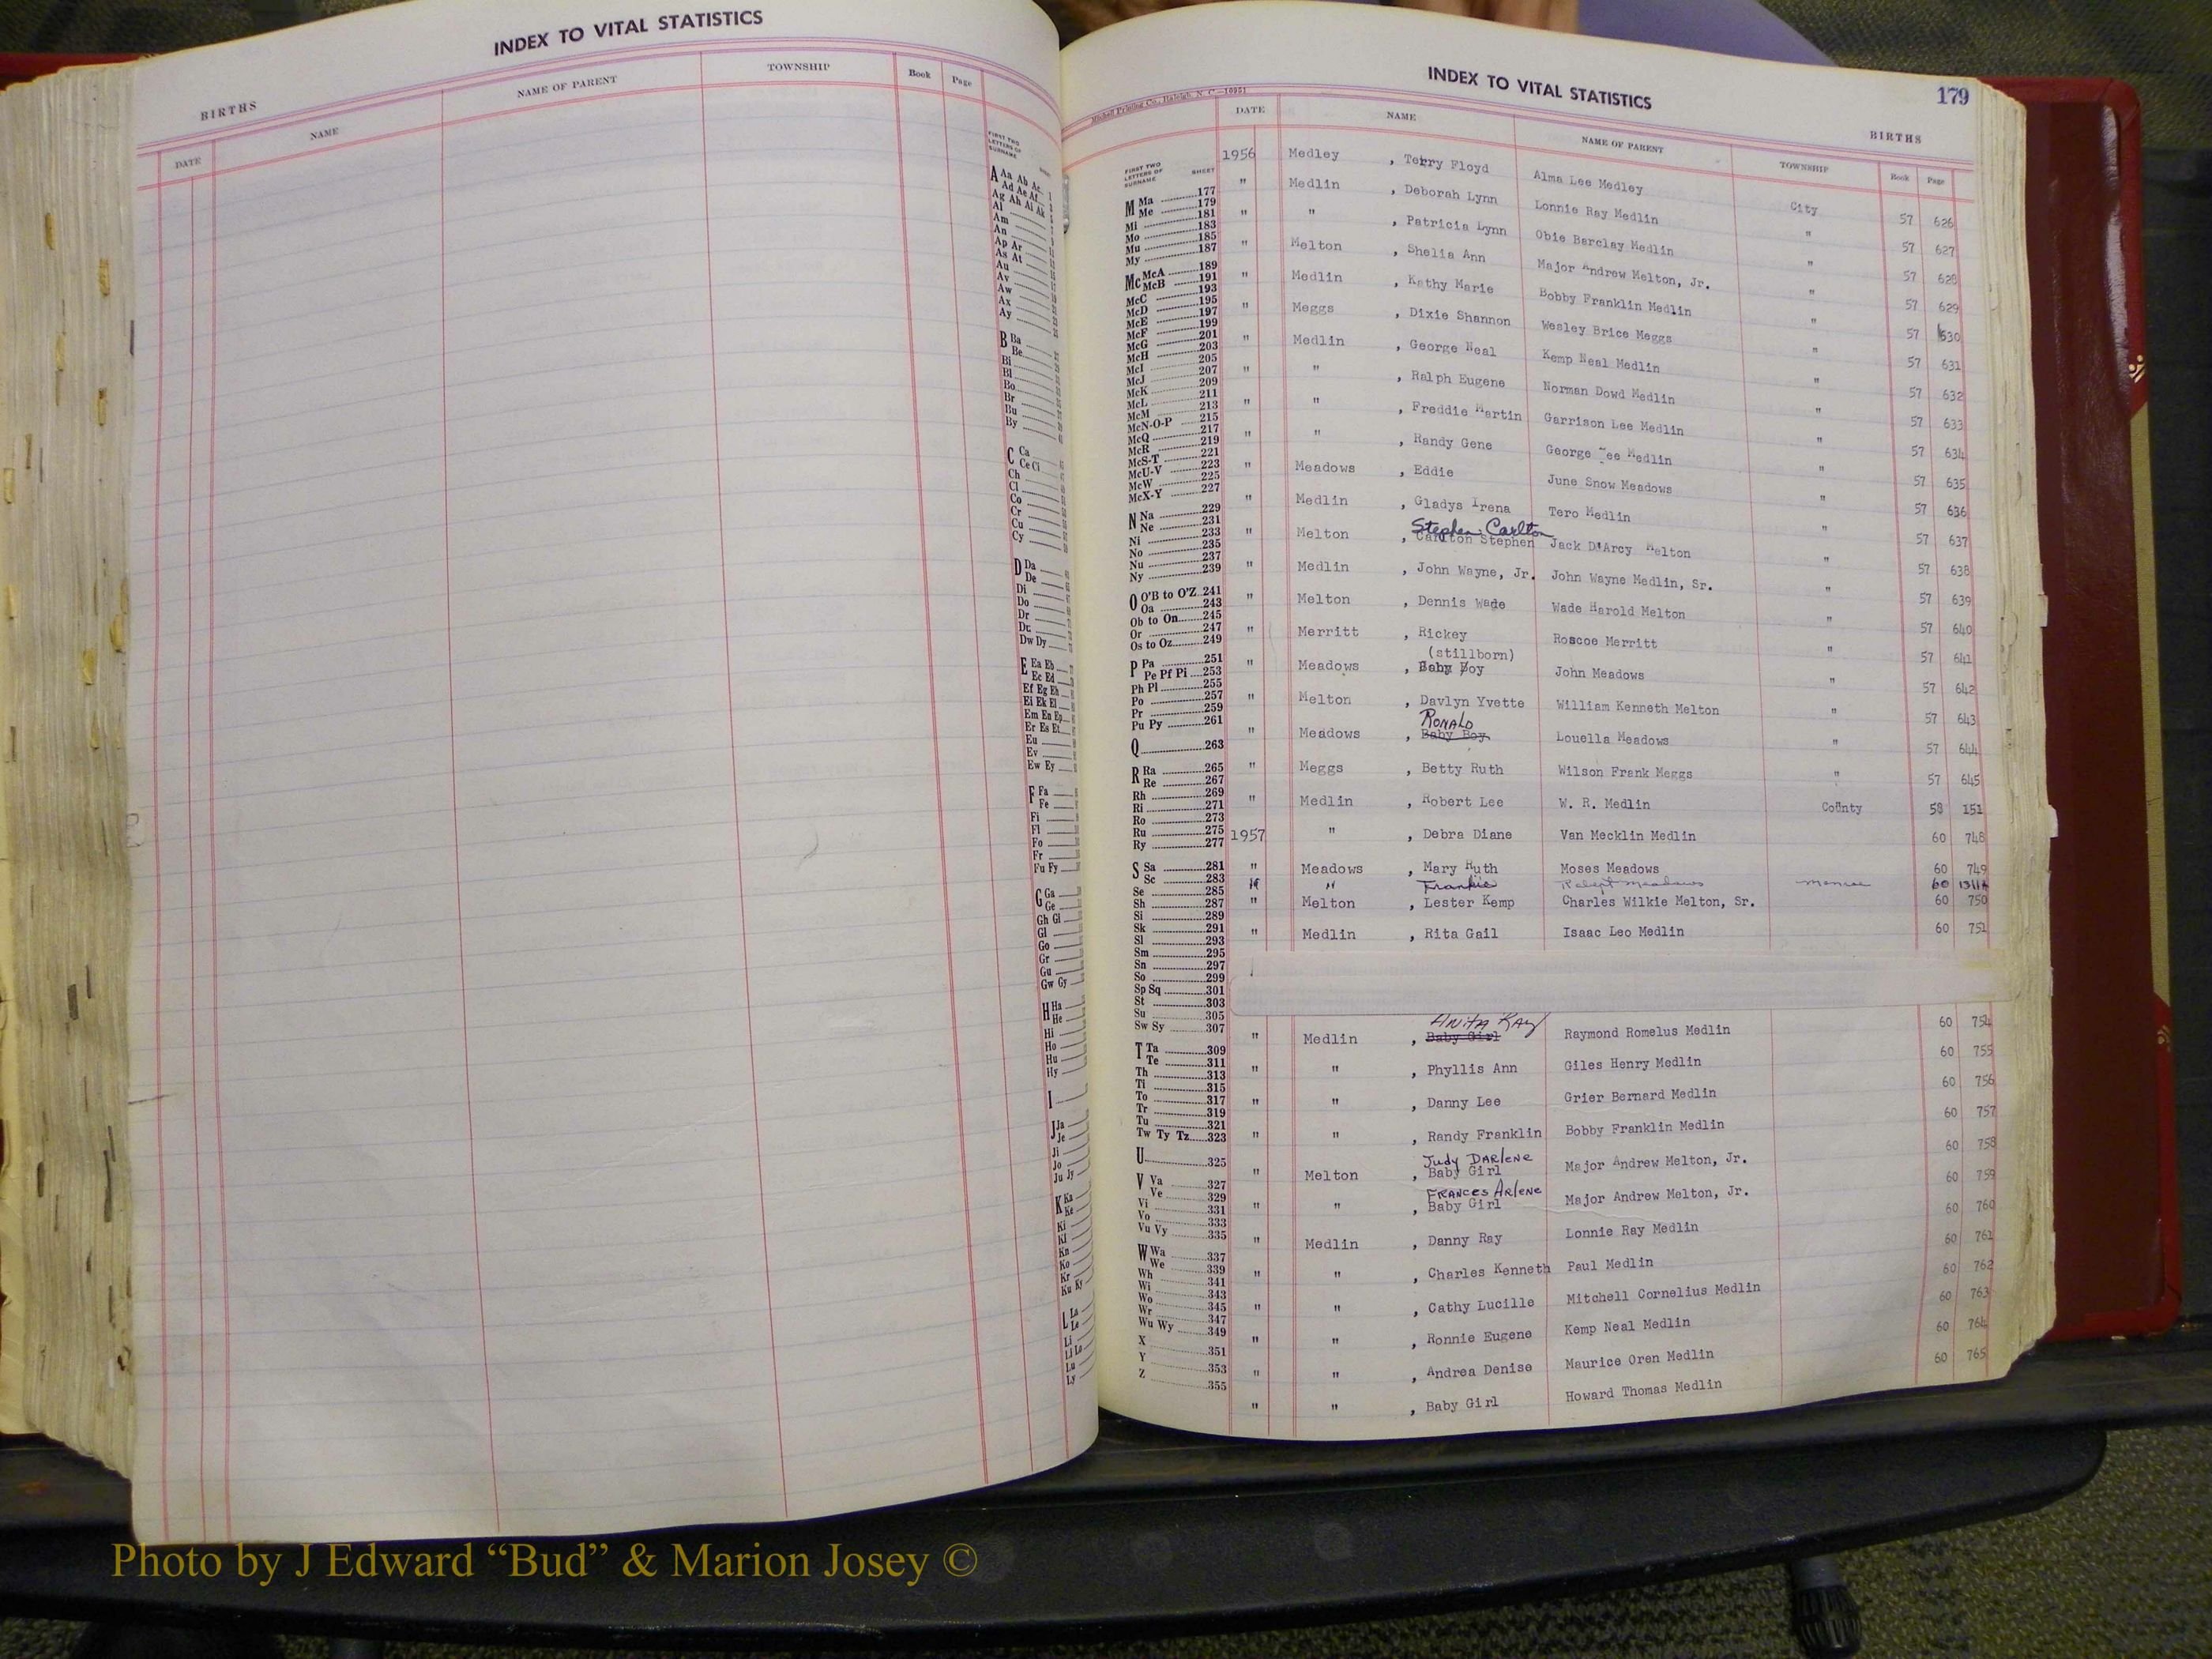 INDEX TO VITAL STATISTICS
BIRTHS
DATE NAME NAME OF PARENT TOWNSHIP Book Page
FIRST TWO LETTERS OF SURNAME
A Aa Ab Ac
Ad Ae Af
Ag Ah Ai Ak
Al
Am
An
Ap Ar
As At
Au
Av
Aw
Ax
Ay
B Ba
Be
Bi
Bl
Bo
Br
Bu
By
C Ca
Ce Ci
Ch
Cl
Co
Cr
Cu
Cy
D Da
De
Di
Do
Dr
Du
Dw Dy
E Ea Eb
Ec Ed
Ef Eg Eh
Ei Ek El
Em En Ep
Er Es Et
Eu
Ev
Ew Ey
F Fa
Fe
Fi
Fl
Fo
Fr
Fu Fy
G Ga
Ge
Gh Gi
Gl
Go
Gr
Gu
Gw Gy
H Ha
He
Hi
Ho
Hu
Hy
I
J Ja
Je
Ji
Jo
Ju Jy
K Ka
Ke
Ki
Kl
Kn
Ko
Kr
Ku Ky
L La
Le
Li
Ll Lo
Lu
Ly
INDEX TO VITAL STATISTICS
179
Mitchell Printing Co., Raleigh, N. C.—10951
BIRTHS
DATE NAME NAME OF PARENT TOWNSHIP Book Page
FIRST TWO LETTERS OF SURNAME SHEET
M Ma 177
Me 179
Mi 181
Mo 183
Mu 185
My 187
Mc McA 189
McB 191
McC 193
McD 195
McE 197
McF 199
McG 201
McH 203
McI 205
McJ 207
McK 209
McL 211
McM 213
McN-O-P 215
McQ 217
McR 219
McS-T 221
McU-V 223
McW 225
McX-Y 227
N Na 229
Ne 231
Ni 233
No 235
Nu 237
Ny 239
O O'B to O'Z 241
Oa 243
Ob to On 245
Or 247
Os to Oz 249
P Pa 251
Pe Pf Pi 253
Ph Pl 255
Po 257
Pr 259
Pu Py 261
Q 263
R Ra 265
Re 267
Rh 269
Ri 271
Ro 273
Ru 275
Ry 277
S Sa 281
Sc 283
Se 285
Sh 287
Si 289
Sk 291
Sl 293
Sm 295
Sn 297
So 299
Sp Sq 301
St 303
Su 305
Sw Sy 307
T Ta 309
Te 311
Th 313
Ti 315
To 317
Tr 319
Tu 321
Tw Ty Tz 323
U 325
V Va 327
Ve 329
Vi 331
Vo 333
Vu Vy 335
W Wa 337
We 339
Wh 341
Wi 343
Wo 345
Wr 347
Wu Wy 349
X 351
Y 353
Z 355
1956 Medley , Terry Floyd Alma Lee Medley City 57 626
" Medlin , Deborah Lynn Lonnie Ray Medlin " 57 627
" " , Patricia Lynn Obie Barclay Medlin " 57 628
" Melton , Shelia Ann Major Andrew Melton, Jr. " 57 629
" Medlin , Kathy Marie Bobby Franklin Medlin " 57 630
" Meggs , Dixie Shannon Wesley Brice Meggs " 57 631
" Medlin , George Neal Kemp Neal Medlin " 57 632
" " , Ralph Eugene Norman Dowd Medlin " 57 633
" " , Freddie Martin Garrison Lee Medlin " 57 634
" " , Randy Gene George Lee Medlin " 57 635
" Meadows , Eddie June Snow Meadows " 57 636
" Medlin , Gladys Irena Tero Medlin " 57 637
Stephen Carlton
" Melton , Carlton Stephen Jack D'Arcy Melton " 57 638
" Medlin , John Wayne, Jr. John Wayne Medlin, Sr. " 57 639
" Melton , Dennis Wade Wade Harold Melton " 57 640
" Merritt , Rickey Roscoe Merritt " 57 641
(stillborn)
" Meadows , Baby Boy John Meadows " 57 642
" Melton , Davlyn Yvette William Kenneth Melton " 57 643
RONALD
" Meadows , Baby Boy Louella Meadows " 57 644
" Meggs , Betty Ruth Wilson Frank Meggs " 57 645
" Medlin , Robert Lee W. R. Medlin County 58 151
1957 " , Debra Diane Van Mecklin Medlin 60 748
" Meadows , Mary Ruth Moses Meadows 60 749
" " Frankie Robert Meadows Monroe 60
" Melton , Lester Kemp Charles Wilkie Melton, Sr. 60 750
" Medlin , Rita Gail Isaac Leo Medlin 60 751
ANITA KAY
" Medlin , Baby Girl Raymond Romelus Medlin 60 754
" " , Phyllis Ann Giles Henry Medlin 60 755
" " , Danny Lee Grier Bernard Medlin 60 756
" " , Randy Franklin Bobby Franklin Medlin 60 757
Judy DARLENE
" Melton , Baby Girl Major Andrew Melton, Jr. 60 758
FRANCES ARLENE
" " , Baby Girl Major Andrew Melton, Jr. 60 759
" Medlin , Danny Ray Lonnie Ray Medlin 60 760
" " , Charles Kenneth Paul Medlin 60 761
" " , Cathy Lucille Mitchell Cornelius Medlin 60 762
" " , Ronnie Eugene Kemp Neal Medlin 60 763
" " , Andrea Denise Maurice Oren Medlin 60 764
" " , Baby Girl Howard Thomas Medlin 60 765
Photo by J Edward “Bud” & Marion Josey ©